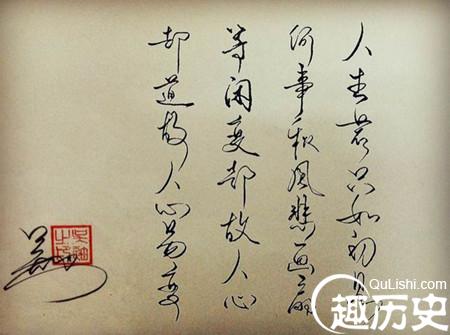 人生若只如初见
何事秋风悲画扇
等闲变却故人心
却道故人心易变
QuLishi.com
趣历史